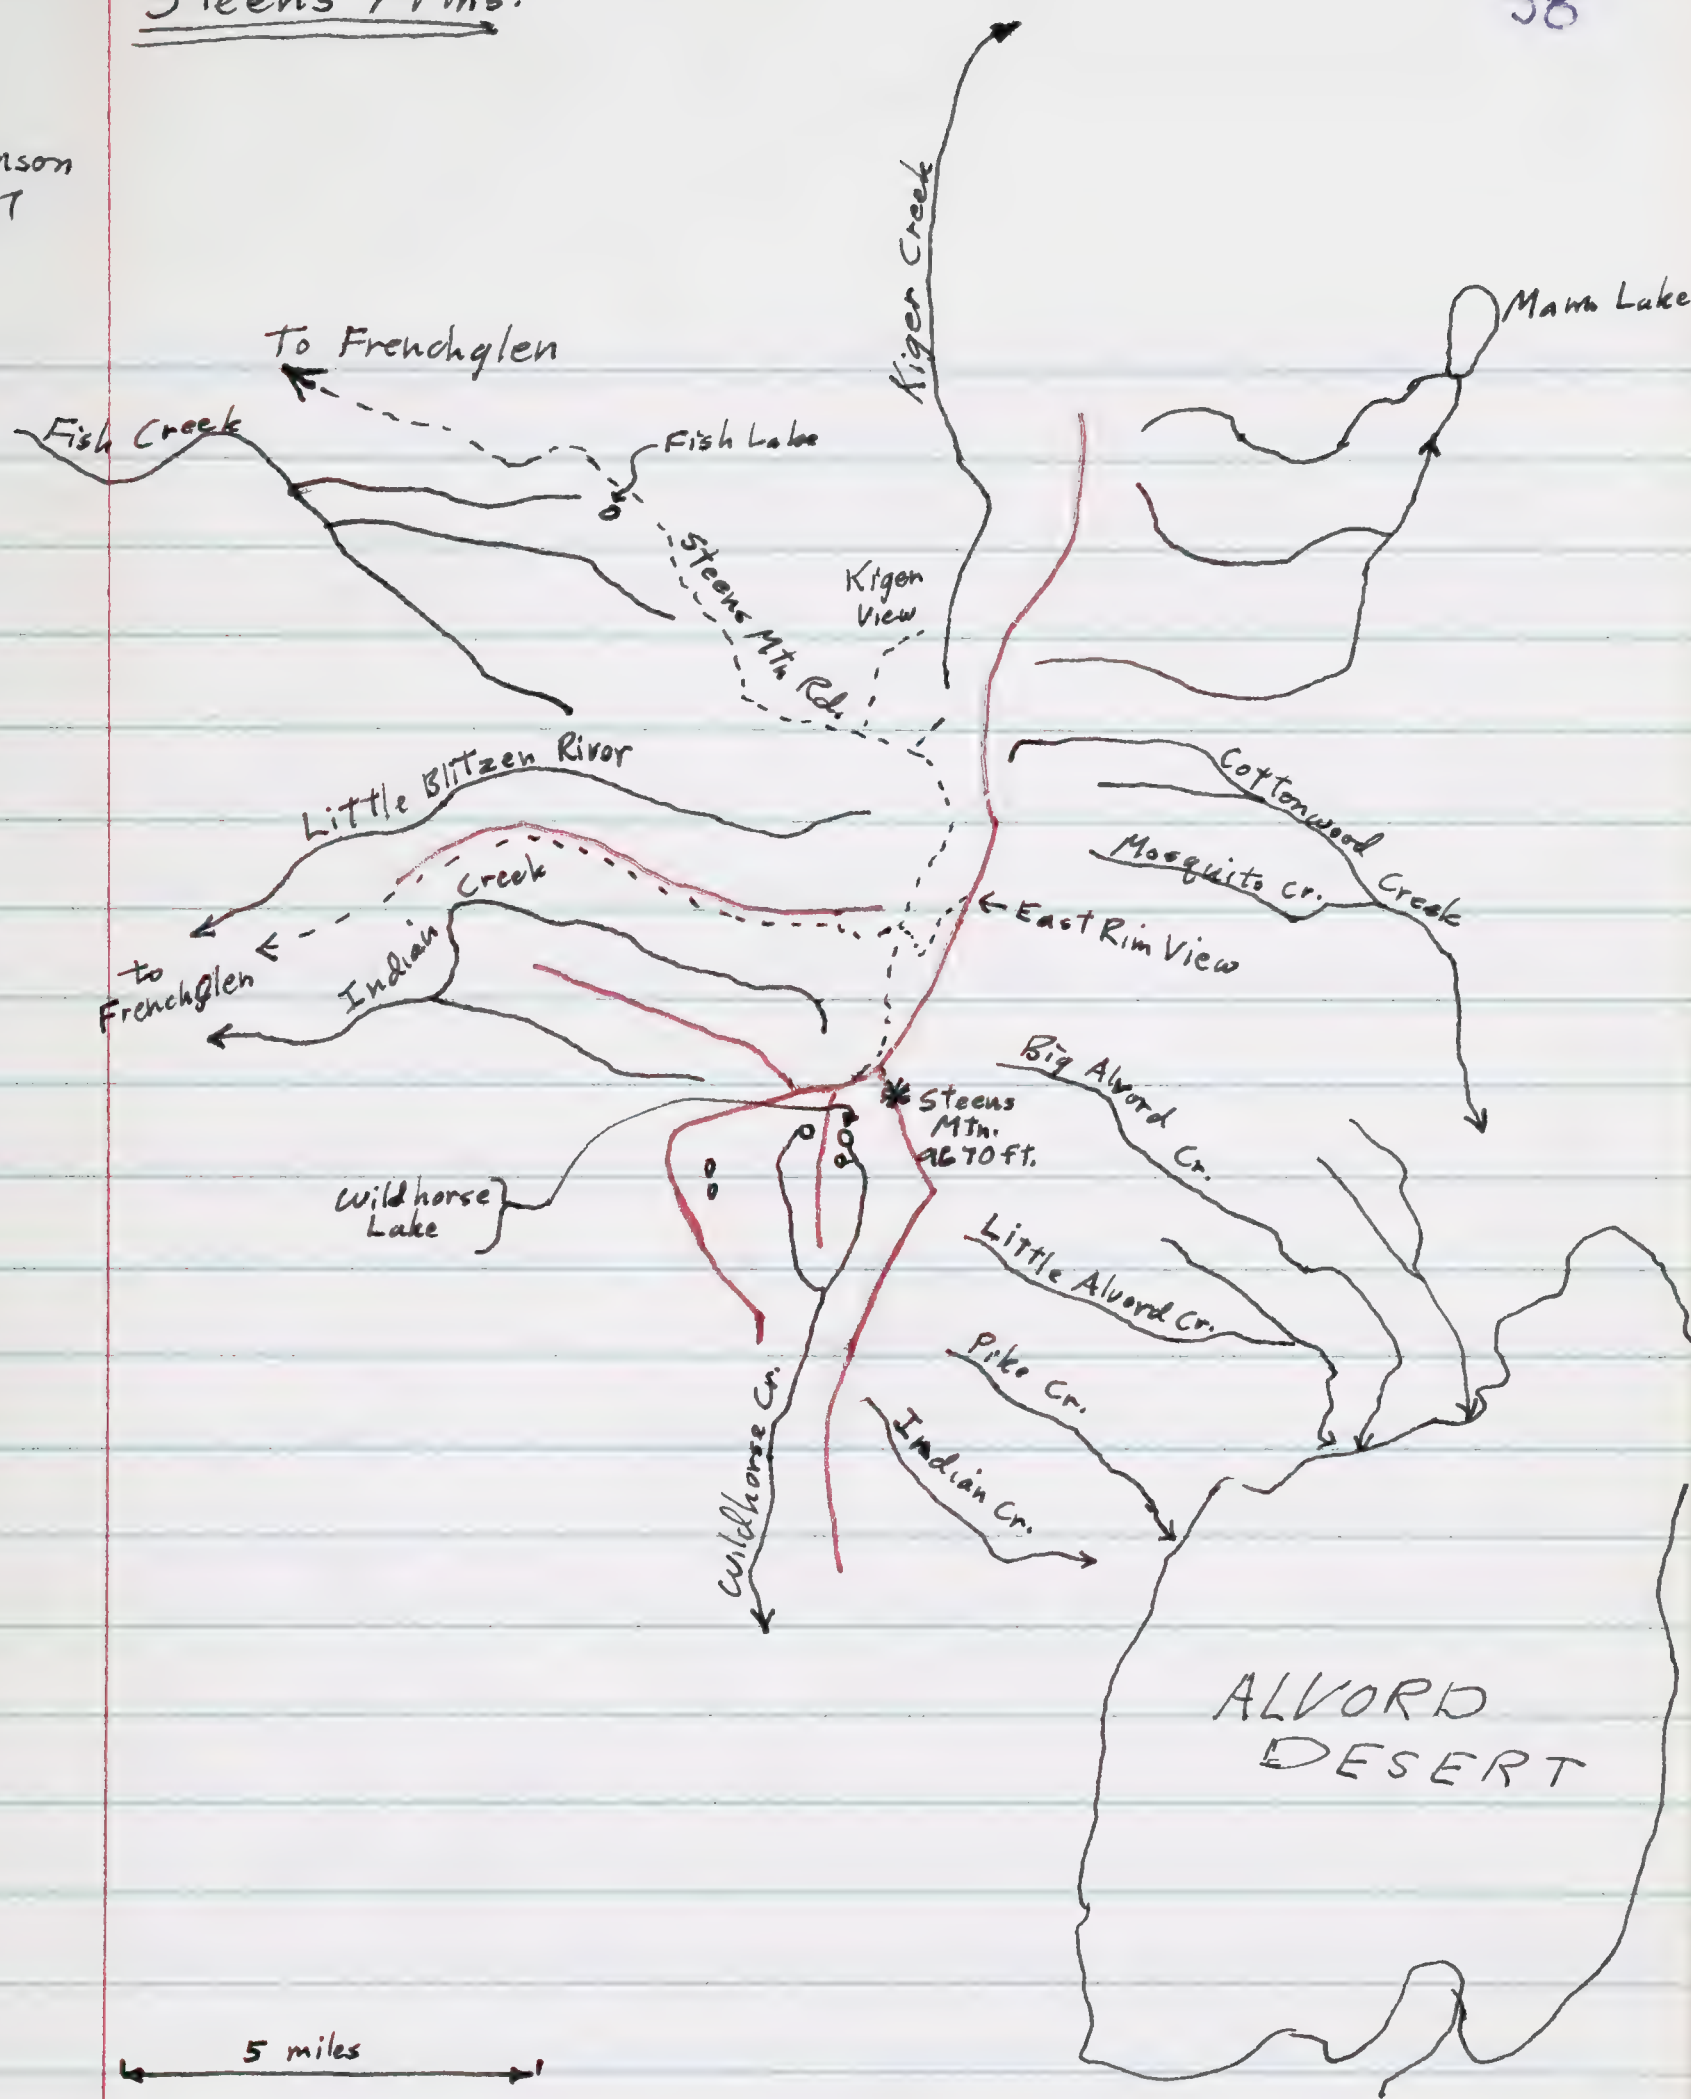 Steens Mtns.
38
nson
7
Kiger Creek
Mann Lake
To Frenchglen
Fish Creek
Fish Lake
Steens Mtn Rd.
Kiger
View
Little Blitzen River
Cottonwood Creek
Mosquito Cr.
Indian Creek
← East Rim View
to
Frenchglen
Big Alvord Cr.
Steens
Mtn.
9670 ft.
Wildhorse
Lake
Little Alvord Cr.
Pike Cr.
Indian Cr.
Wildhorse Cr.
ALVORD
DESERT
5 miles